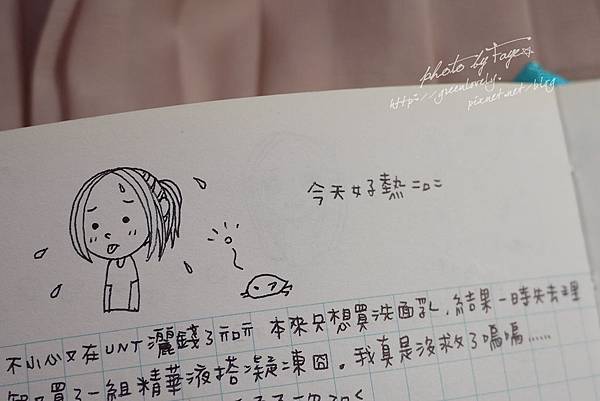 photo by Faye
http://greenlovely.
pixnet.net/blog
今天好熱=口=
不小心又在UNT灑錢了==口== 本來只想買洗面乳，結果一時失去理
智 買了一組精華液搭凝凍囧。我真是沒救了嗚嗚......